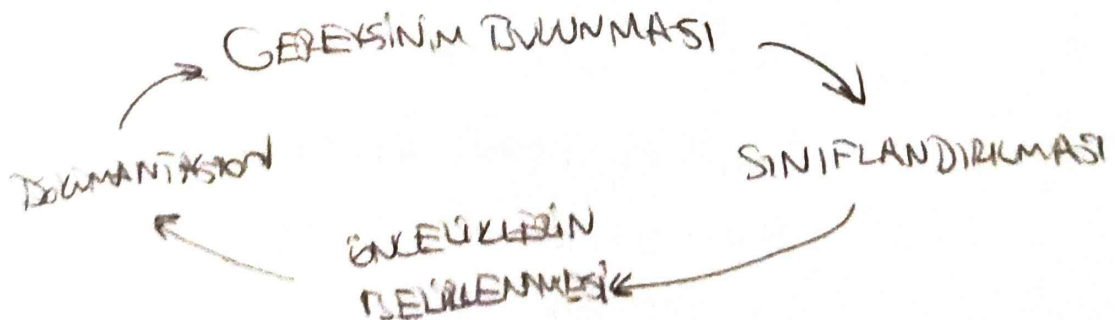 GEREKSİNİM BULUNMASI
SINIFLANDIRILMASI
ÖNCELİKLERİN
BELİRLENMESİ
DOKÜMANTASYON